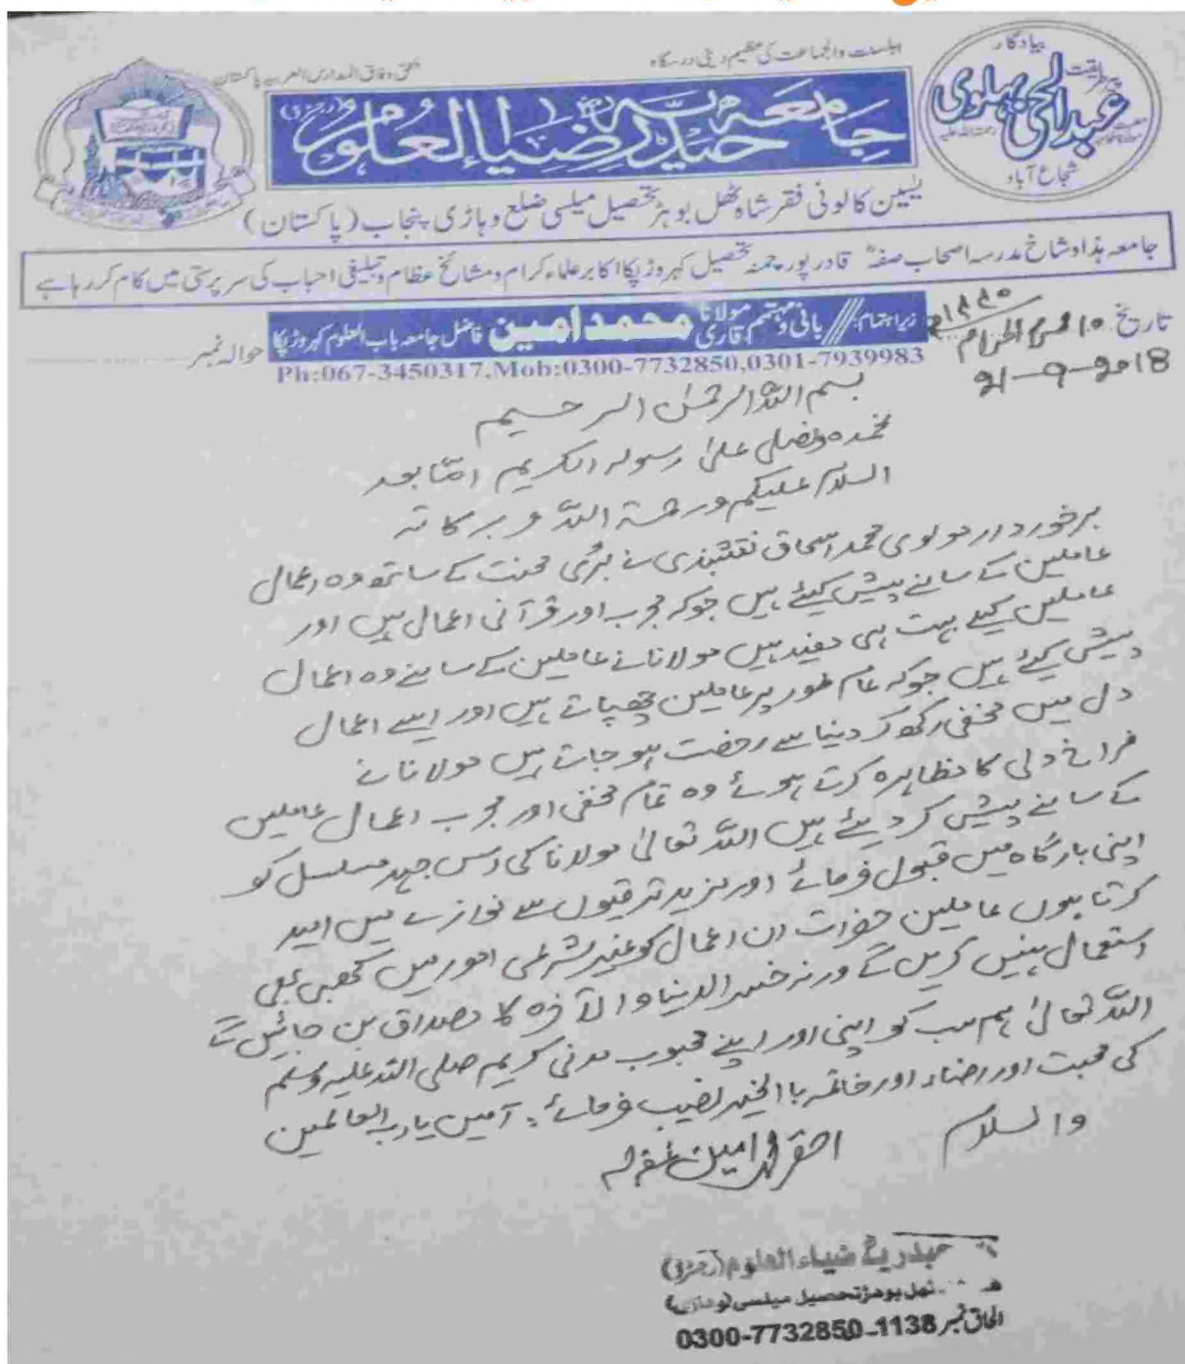 بیادگار
پیر طریقت
عبدالحی بہلوی
شجاع آباد
اہلسنت والجماعت کی عظیم دینی درسگاہ
ملحق وفاق المدارس العربیہ پاکستان
جامعہ حیدریہ ضیاء العلوم (رجسٹرڈ)
یٰسین کالونی فقر شاہ ٹھل بوہڑ تحصیل میلسی ضلع وہاڑی پنجاب (پاکستان)
جامعہ ہذا و شاخ مدرسہ اصحاب صفہؓ قادر پور چمنہ تحصیل کہروڑپکا اکابر علماء کرام و مشائخ عظام و تبلیغی احباب کی سرپرستی میں کام کر رہا ہے
زیر اہتمام: بانی و مہتمم مولانا قاری محمد امین فاضل جامعہ باب العلوم کہروڑپکا
تاریخ ۱۰ محرم الحرام ۱۴۴۰
حوالہ نمبر
Ph:067-3450317,Mob:0300-7732850,0301-7939983
21-9-2018
بسم اللہ الرحمٰن الرحیم
نحمدہ ونصلی علیٰ رسولہ الکریم امّا بعد
السلام علیکم ورحمۃ اللہ و برکاتہ
برخوردار مولوی محمد اسحاق نقشبندی نے بڑی محنت کے ساتھ وہ اعمال
عاملین کے سامنے پیش کیئے ہیں جوکہ مجرب اور قرآنی اعمال ہیں اور
عاملین کیلے بہت ہی مفید ہیں مولانا نے عاملین کے سامنے وہ اعمال
پیش کیئے ہیں جوکہ عام طور پر عاملین چھپاتے ہیں اور ایسے اعمال
دل میں مخفی رکھ کر دنیا سے رخصت ہو جاتے ہیں مولانا نے
فراخ دلی کا مظاہرہ کرتے ہوئے وہ تمام مخفی اور مجرب اعمال عاملین
کے سامنے پیش کر دیئے ہیں اللہ تعالیٰ مولانا کی اس جہد مسلسل کو
اپنی بارگاہ میں قبول فرمائے اور مزید ترقیوں سے نوازے میں امید
کرتا ہوں عاملین حضرات ان اعمال کو غیر شرعی امور میں کبھی بھی
استعمال نہیں کریں گے ورنہ خسر الدنیا والآخرہ کا مصداق بن جائیں گے
اللہ تعالیٰ ہم سب کو اپنی اور اپنے محبوب مدنی کریم صلی اللہ علیہ وسلم
کی محبت اور رضاء اور خاتمہ باالخیر نصیب فرمائے۔ آمین یا رب العالمین
والسلام احقر محمد امین غفرلہ
حیدریہ ضیاء العلوم (رجسٹرڈ)
ٹھل بوہڑ تحصیل میلسی (وہاڑی)
الحاق نمبر 1138-0300-7732850